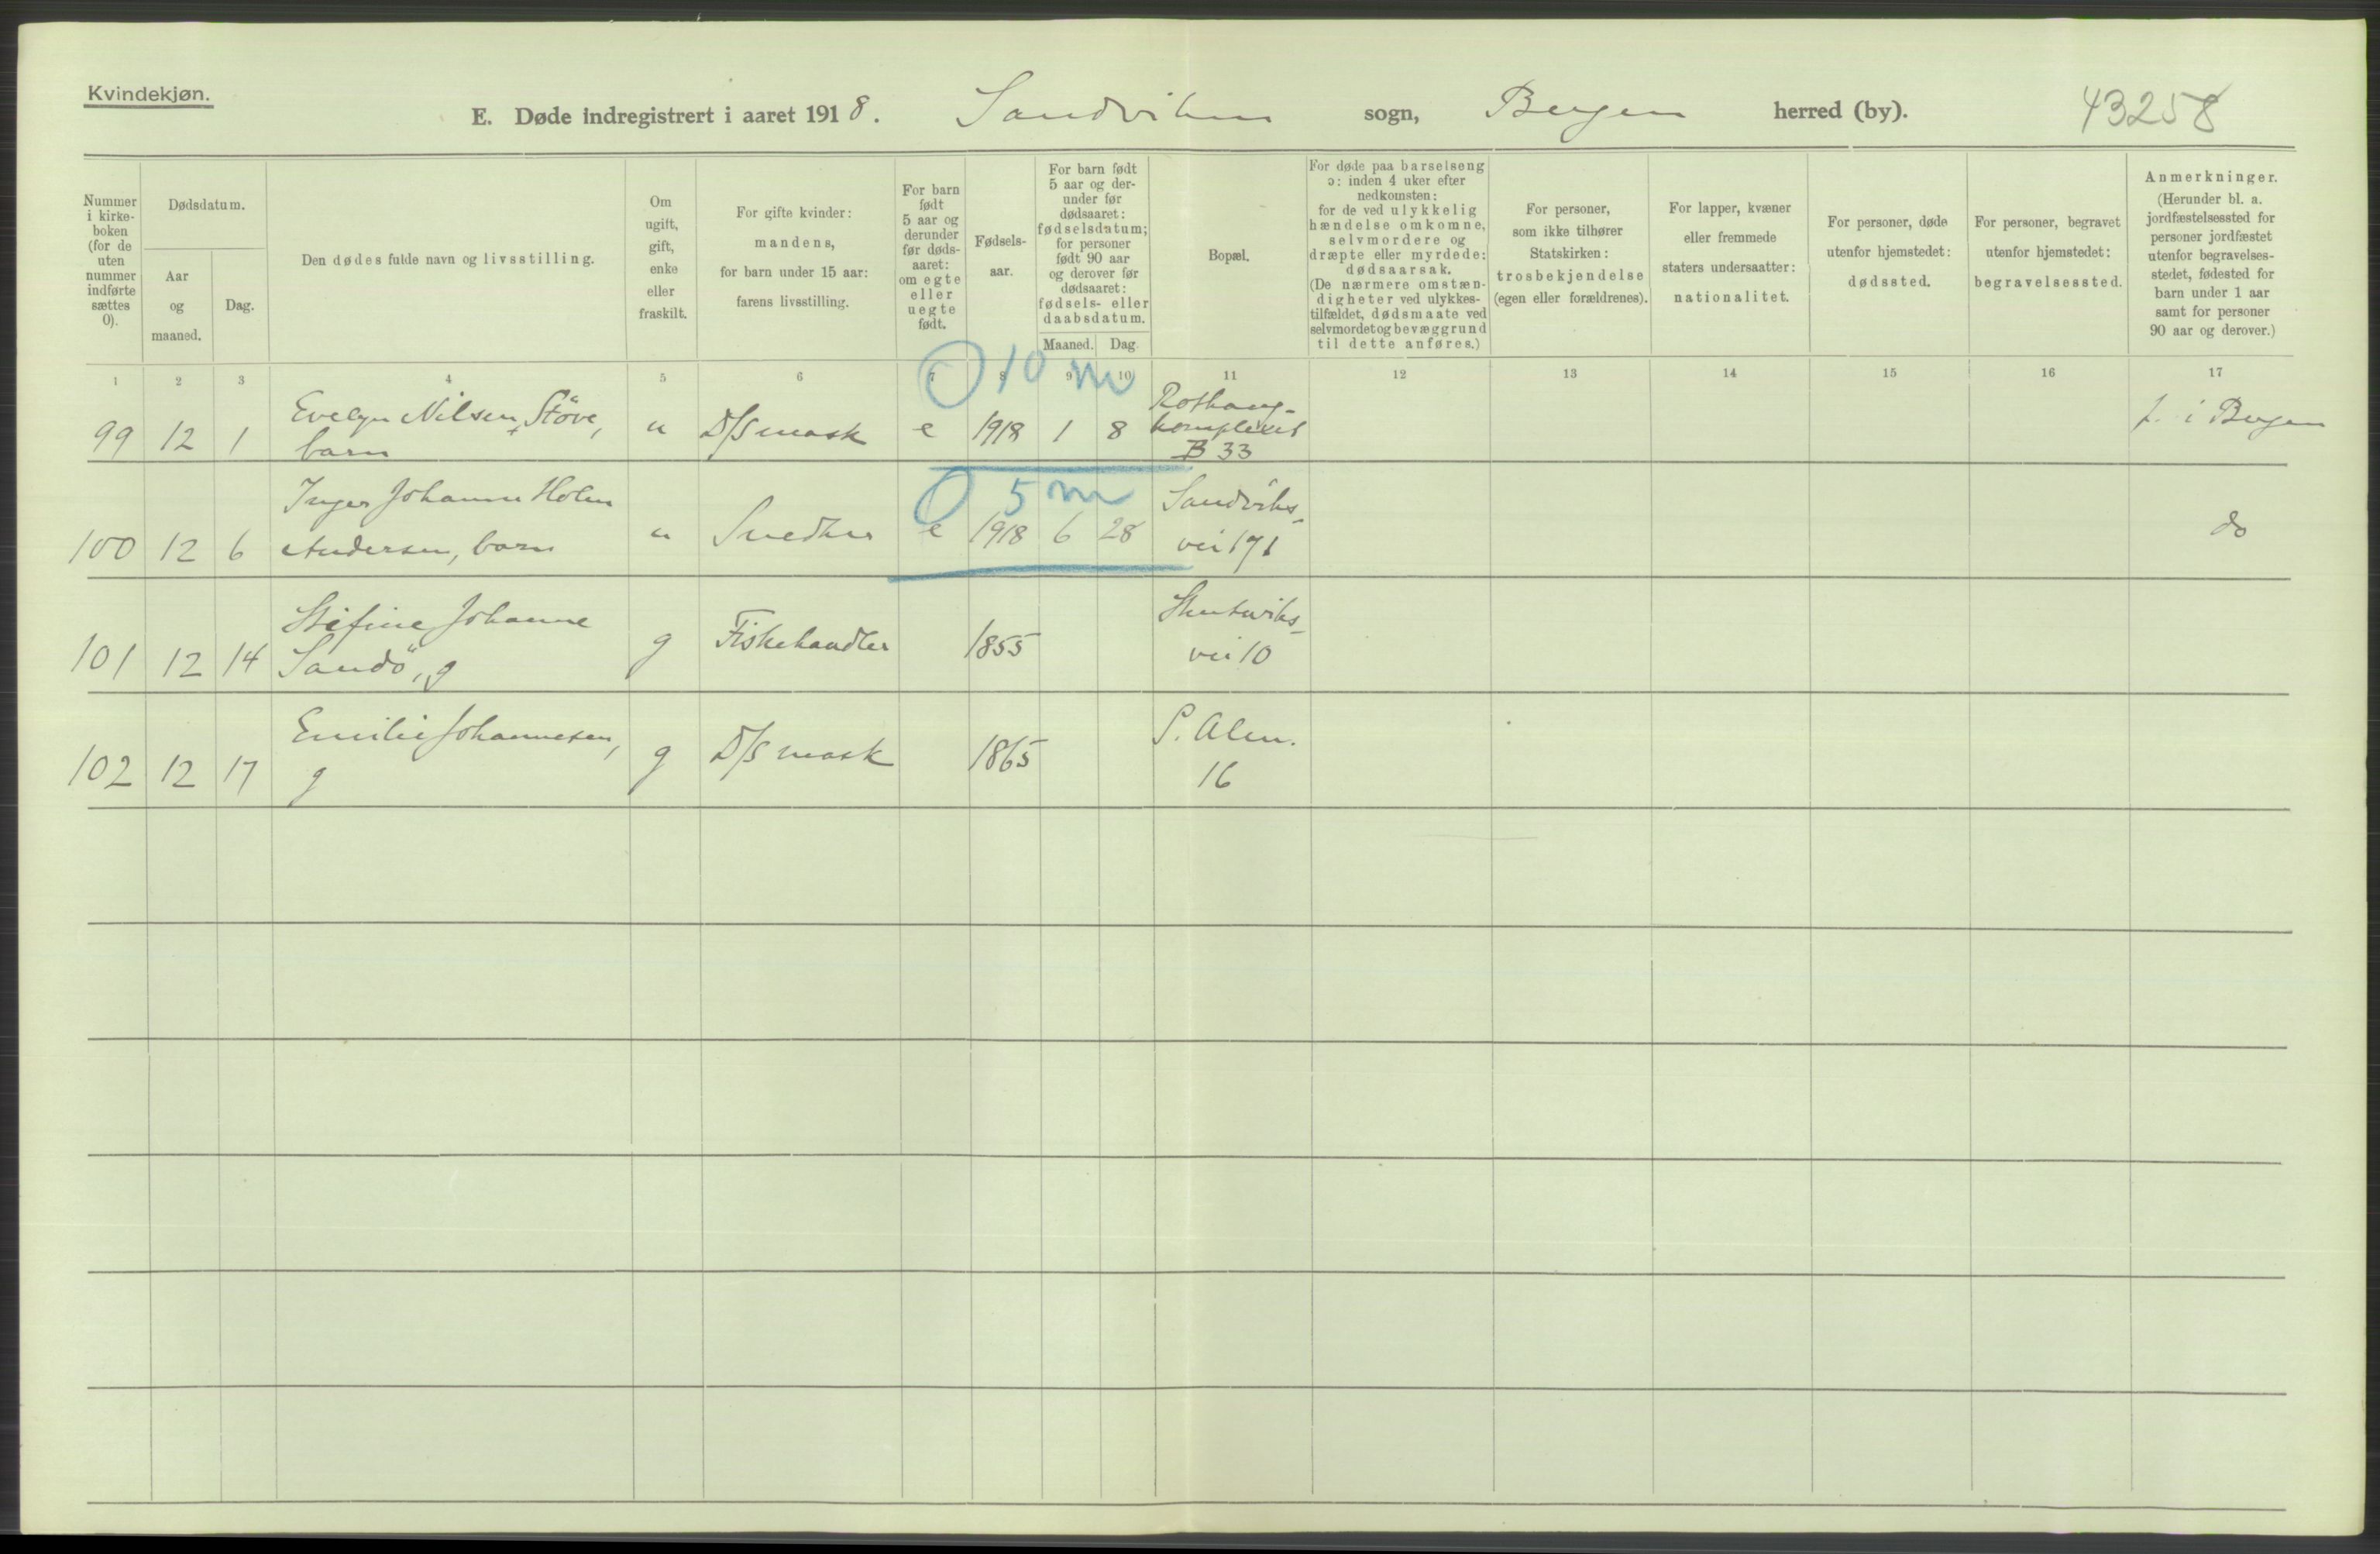 Kvindekjøn.
E. Døde indregistrert i aaret 1918. Sandviken sogn, Bergen herred (by). 43258
Nummer i kirke- boken (for de uten nummer indførte sættes 0).
Dødsdatum.
Aar og maaned.
Dag.
Den dødes fulde navn og livsstilling.
Om ugift, gift, enke eller fraskilt.
For gifte kvinder: mandens, for barn under 15 aar: farens livsstilling.
For barn født 5 aar og derunder før døds- aaret: om egte eller uegte født.
Fødsels- aar.
For barn født 5 aar og der- under før dødsaaret: fødselsdatum; for personer født 90 aar og derover før dødsaaret: fødsels- eller daabsdatum.
Maaned. Dag.
Bopæl.
For døde paa barselseng ɔ: inden 4 uker efter nedkomsten: for de ved ulykkelig hændelse omkomne, selvmordere og dræpte eller myrdede: dødsaarsak. (De nærmere omstæn- digheter ved ulykkes- tilfældet, dødsmaate ved selvmordet og bevæggrund til dette anføres.)
For personer, som ikke tilhører Statskirken: trosbekjendelse (egen eller forældrenes).
For lapper, kvæner eller fremmede staters undersaatter: nationalitet.
For personer, døde utenfor hjemstedet: dødssted.
For personer, begravet utenfor hjemstedet: begravelsessted.
Anmerkninger. (Herunder bl. a. jordfæstelsessted for personer jordfæstet utenfor begravelses- stedet, fødested for barn under 1 aar samt for personer 90 aar og derover.)
1 2 3 4 5 6 7 8 9 10 11 12 13 14 15 16 17
0 10 m
99 12 1 Evelyn Nilsen Støve, barn u D/S mask e 1918 1 8 Rothaug- komplekset B 33 f. i Bergen
0 5 m
100 12 6 Inger Johanne Holm Andersen, barn u Snedker e 1918 6 28 Sandviks- vei 171 do
101 12 14 Stefine Johanne Sandö, g g Fiskehandler 1855 Skuteviks- vei 10
102 12 17 Emilie Johannesen, g g D/S mask 1865 S. Alm. 16